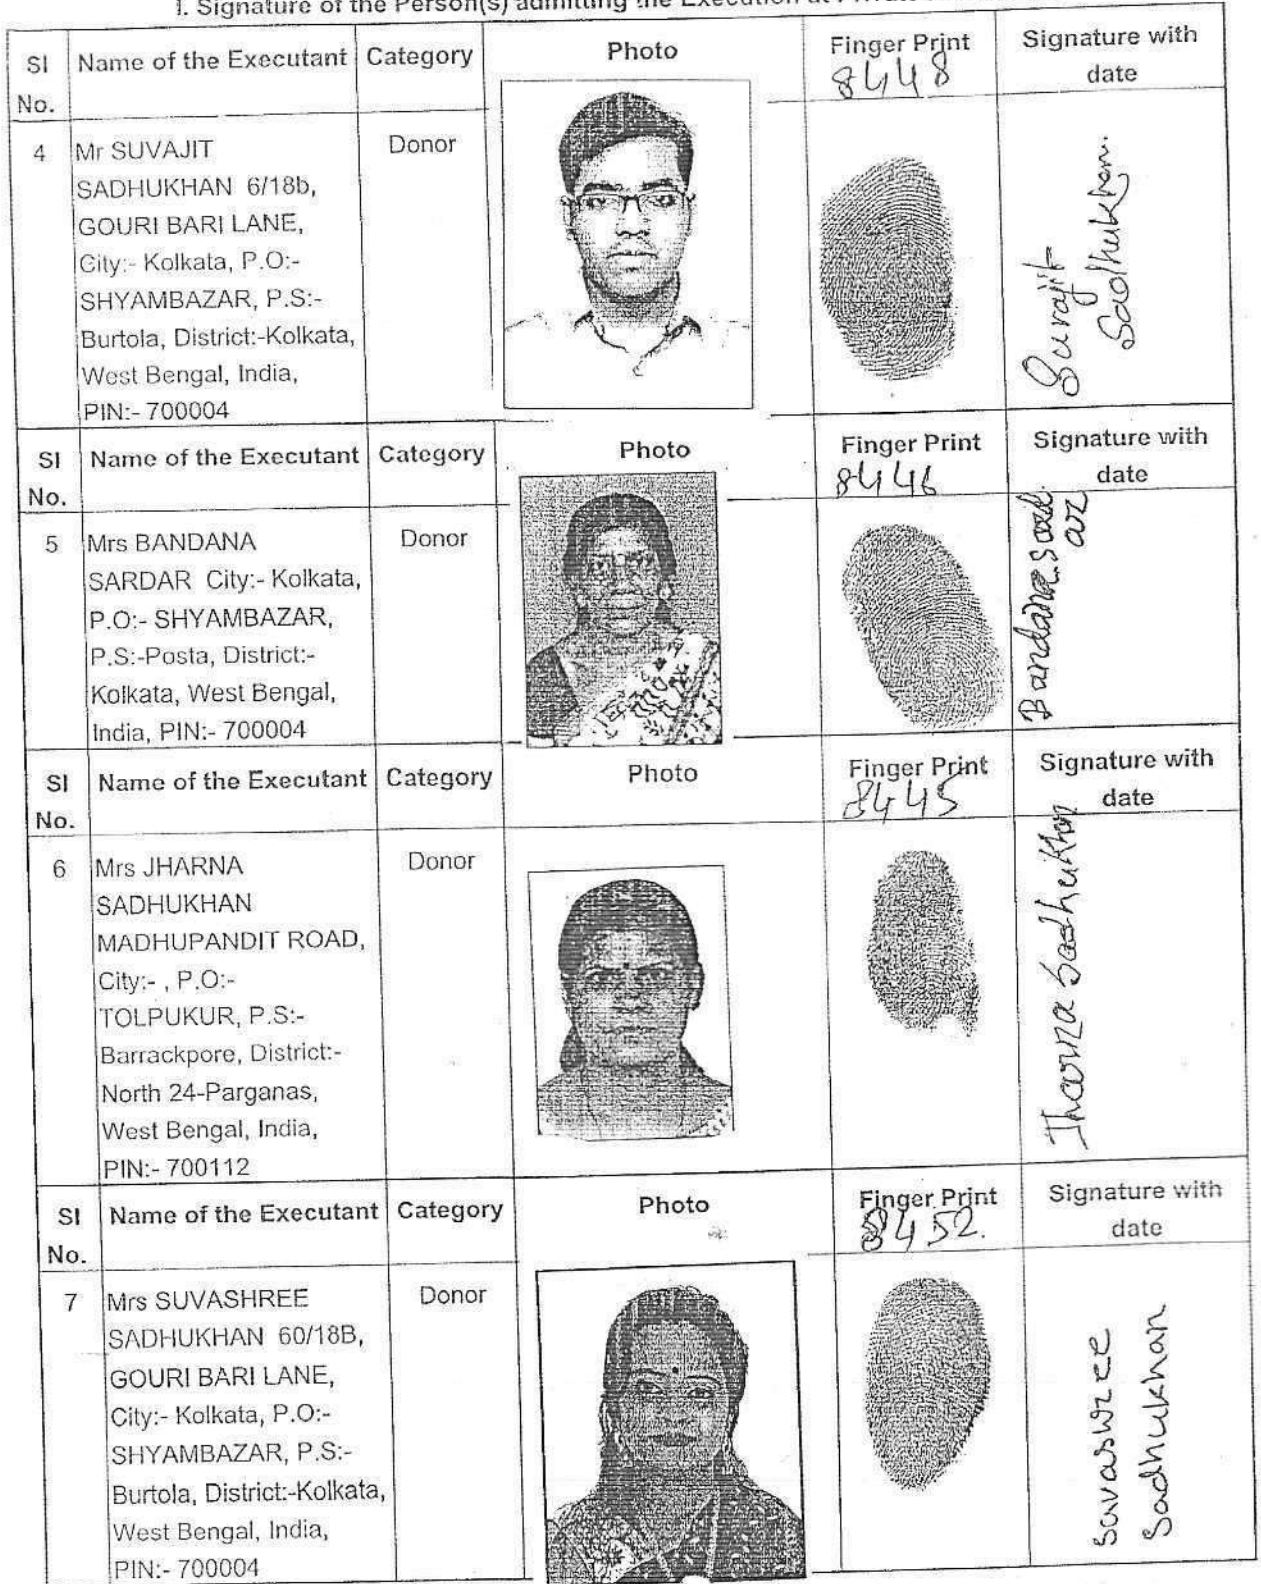 I. Signature of the Person(s) admitting the Execution at Private
Sl No. Name of the Executant Category Photo Finger Print Signature with date
8448
4 Mr SUVAJIT Donor
SADHUKHAN 6/18b,
GOURI BARI LANE,
City:- Kolkata, P.O:-
SHYAMBAZAR, P.S:-
Burtola, District:-Kolkata,
West Bengal, India,
PIN:- 700004
Suvajit
Sadhukhan.
Sl No. Name of the Executant Category Photo Finger Print Signature with date
8446
5 Mrs BANDANA Donor
SARDAR City:- Kolkata,
P.O:- SHYAMBAZAR,
P.S:-Posta, District:-
Kolkata, West Bengal,
India, PIN:- 700004
Bandana Sard
ar
Sl No. Name of the Executant Category Photo Finger Print Signature with date
8445
6 Mrs JHARNA Donor
SADHUKHAN
MADHUPANDIT ROAD,
City:- , P.O:-
TOLPUKUR, P.S:-
Barrackpore, District:-
North 24-Parganas,
West Bengal, India,
PIN:- 700112
Jharna Sadhukhan
Sl No. Name of the Executant Category Photo Finger Print Signature with date
8452.
7 Mrs SUVASHREE Donor
SADHUKHAN 60/18B,
GOURI BARI LANE,
City:- Kolkata, P.O:-
SHYAMBAZAR, P.S:-
Burtola, District:-Kolkata,
West Bengal, India,
PIN:- 700004
Suvasree
Sadhukhan